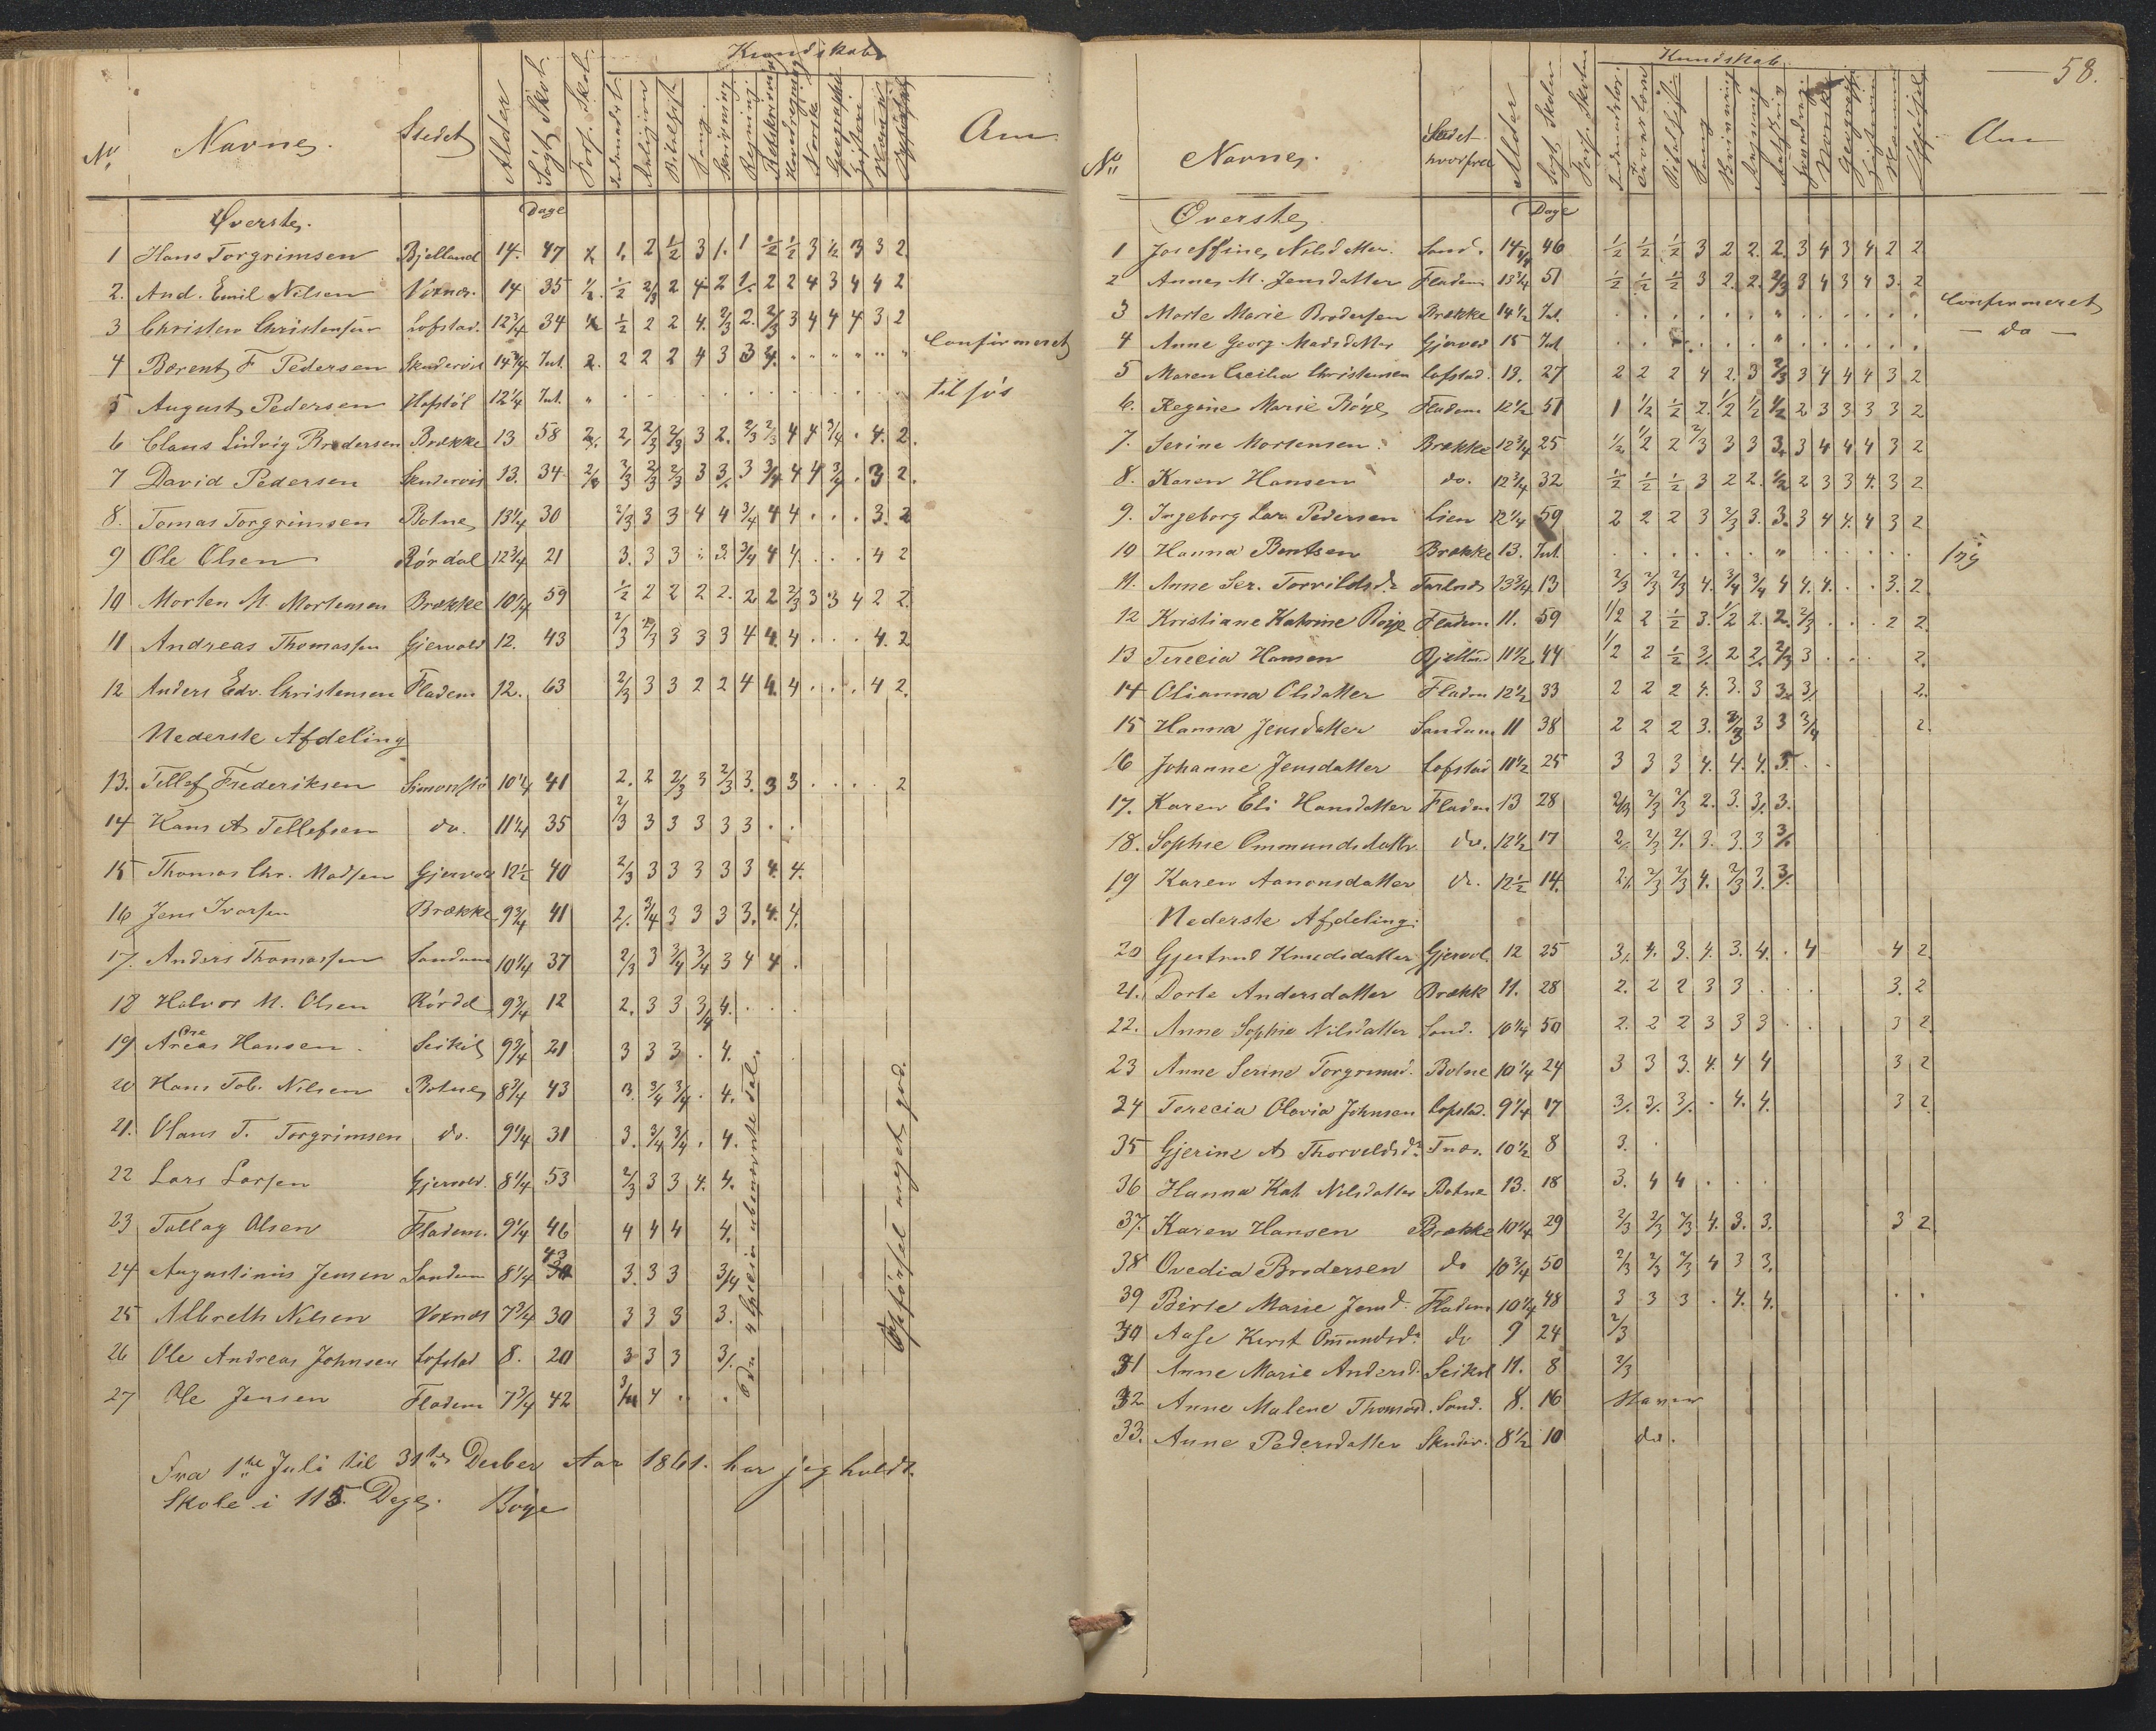 Kundskab
No. Navne. Stedet Alder Søgt Skol. Fors. Skol. Religion Bibelhist. Sang. Skrivning Regning Retskrivning Norsk Geographie Historie Opførsel Anm
Øverste. Dage
1 Hans Torgrimsen Bjelland 14. 47 2 1. 2 1/2 3 1. 1 1/2 1/2 3 1/2 3 3 2
2. And. Emil Nilsen Voxnæs. 14 35 1/2. 1/2 2/3 2 4. 2 1. 2 2 4 3 4 4 2
3 Christen Christensen Lofstad. 12 3/4 34 1/2 2 2 4. 2/3 2. 2/3 3 4 4 4 3 2
4 Berent F Pedersen Skudervis 14 3/4 Int. 2. 2 2 2 4 3 3 4. Confirmeret
5 August Pedersen 12 1/4 Int. " til søs
6 Claus Ludvig Brodersen Brække 13 58 2. 2. 2/3 2/3 3 2. 2/3 2/3 4 4 3/4 . 4. 2.
7 David Pedersen Skudervis 13. 34 2/3 2/3 2/3 2/3 3 3. 3 3/4 4 4 3/4 . 3 2.
8. Tomas Torgrimsen Botne 13 1/4 30 2/3 3 3 4 4 3/4 4 4 . . . 3. 2
9 Ole Olsen Rørdal 12 3/4 21 3. 3 3 . 3. 3/4 4 4. . . . 4 2
10 Morten M. Mortensen Brække 10 1/4 59 1/2 2 2 2 2. 2 2 2/3 3 3 4 2 2.
11 Andreas Thomassen Gjervold 12. 43 2/3 2/3 3 3 3 4 4. 4 . . . 4. 2
12 Anders Edv. Christensen Fladem 12. 63 2/3 3 3 2 2 4 4. 4 . . . 4 2.
Nederste Afdeling
13. Tellef Frederiksen Simonstø 10 1/4 41 2. 2 2/3 3 2/3 3. 3 3 . . . . 2
14 Hans A Tellefsen do. 11 1/4 35 2/3 3 3 3 3 3 . .
15 Thomas Chr. Madsen Gjervold 12 1/2 40 2/3 3 3 3 3 3 4. 4.
16 Jens Ivarsen Brække 9 3/4 41 2/. 3/4 3 3 3 3. 4. 4.
17. Anders Thomassen Sandum 10 1/4 37 2/3 3 3/4 3/4 3 4 4 .
18 Halvor M. Olsen Rørdal 9 3/4 12 2. 3 3 3/4 4. . .
19 Areas Hansen. Seikil 9 3/4 21 3 3 3 . 4.
20 Hans Tob. Nilsen Botne 8 3/4 43 3. 3/4 3/4 . 4.
21. Olaus T. Torgrimsen do. 9 1/4 31 3. 3/4 3/4 . 4.
22 Lars Larsen Gjervold. 8 1/4 53 2/3 3 3 4. 4.
23 Tallag Olsen Fladem. 9 1/4 46 4 4 4 4.
24 Augustinus Jensen Sandum 8 1/4 43 3. 3 3 3/4
25 Albreth Nilsen Voxnæs 7 3/4 30 3 3 3 3.
26 Ole Andreas Johnsen Lofstad 8. 20 3 3 3 3/.
27 Ole Jensen Fladem 7 3/4 42 3/4 4 . .
4 Species ubenævnte Tal.
Opførsel meget god.
Fra 1ste Juli til 31te Decber Aar 1861. har jeg holdt
Skole i 115 Dage. Boye
58.
Kundskab.
No. Navne. Stedet hvorfra Alder Søgt Skolen Fors. Skolen Sang Skrivning Regning Norsk Geograph Historie Opførsel Anm
Øverste Dage
1 Joseffine Nilsdatter. Sand. 14 1/4 46 1/2 1/2 1/2 3 2 2. 2. 3 4 3 4 2 2
2 Anne M. Jensdatter Fladem 13 1/4 51 1/2 1/2 1/2 3 2. 2. 2/3 3 4 3 4 3. 2
3 Marte Marie Brodersen Brække 14 1/2 Int. Confirmeret
4 Anne Georg. Madsdatter Gjervold 15 Int — do —
5 Maren Cecilia Christensen Lofstad. 13. 27 2 2 2 4 2. 3 2/3 3 4 4 4 3 2
6. Regine Marie Bøye Fladem 12 1/2 51 1 1/2 1/2 2. 1/2 1/2 1/2 2 3 3 3 3 2
7. Serine Mortensen. Brække 12 3/4 25 1/2 1/2 2 2/3 3 3 3. 3 4 4 4 3 2
8. Karen Hansen do. 12 3/4 32 1/2 1/2 1/2 3 2 2. 1/2 2 3 3 4. 3 2
9. Ingeborg Lar. Pedersen Lien 12 1/4 59 2 2 2 3 2/3 3. 3. 3 4 4. 4 3 2
10 Hanna Bentsen Brække 13. Int. syg
11. Anne Ser. Torvildsd. 13 3/4 13 2/3 2/3 2/3 4. 3/4 3/4 4 4. 4. . . 3. 2.
12 Kristiane Katrine Bøye Fladem 11. 59 1/2 2 1/2 3. 1/2 2. 2. 2/3 . . . 2 2.
13 Terecia Hansen Bjelland 11 1/2 44 1/2 2 1/2 3/. 2 2/. 2/3 3 . . . 2.
14 Olianna Olsdatter Fladem 12 1/2 33 2 2 2 4. 3. 3 3. 3/. 2.
15 Hanna Jensdatter Sandum 11 38 2 2 2 3. 2/3 3 3 3/4 2.
16 Johanne Jensdatter Lofstad 11 1/2 25 3 3 3 4. 4. 4. 5. . .
17. Karen Eli Hansdatter Fladem 13 28 2/3 2/3 2/3 2. 3. 3. 3.
18. Sophie Ommundsdatter do. 12 1/2 17 2/. 2/3 2/. 3. 3. 3 3/.
19 Karen Aanonsdatter do. 12 1/2 14. 2/. 2/3 2/3 4. 2/3 3. 3/.
Nederste Afdeling.
20 Gjertrud Knudsdatter Gjervol. 12 25 3/. 4. 3. 4. 3. 4. . 4 4 2.
21. Dorte Andersdatter Brækk 11. 28 2. 2 2 3 3 . . . 3. 2
22. Anne Sophie Nilsdatter Sand. 10 1/4 50 2. 2 2 3 3 3 . . 3 2.
23 Anne Serine Torgrimsd. Botne 10 1/4 24 3 3 3. 4. 4 4 3 2
24 Terecia Olavia Johnsen Lofstad. 9 1/4 17 3/. 3/. 3/. . 4. 4. 3 2.
35 Gjerine A Thorvaldsd. 10 1/2 8 3. .
36 Hanna Kat Nilsdatter Botne 13. 18 3. 4 4 . . .
37. Karen Hansen Brække 10 1/4 29 2/3 2/3 2/3 4. 3. 3. 3 2
38 Ovedia Brodersen do 10 3/4 50 2/3 2/3 2/3 4 3 3.
39 Birte Marie Jensd. Fladem 10 1/4 48 3 3 3 . 4. 4. . .
30 Aase Kirst Omundsd. do 9 24 2/3
31 Anne Marie Andersd. Seikil 11. 8 2/3
32 Anne Malene Thomasd. Sand. 8. 16 Staver
33. Anne Pedersdatter Skuder. 8 1/2 10 do.